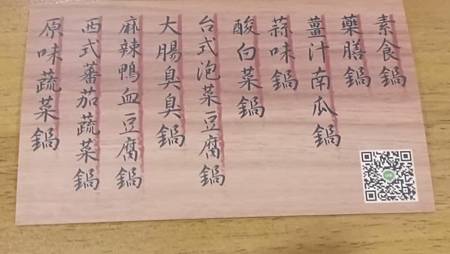 素食鍋
藥膳鍋
薑汁南瓜鍋
蒜味鍋
酸白菜鍋
台式泡菜豆腐鍋
大腸臭臭鍋
麻辣鴨血豆腐鍋
西式蕃茄蔬菜鍋
原味蔬菜鍋